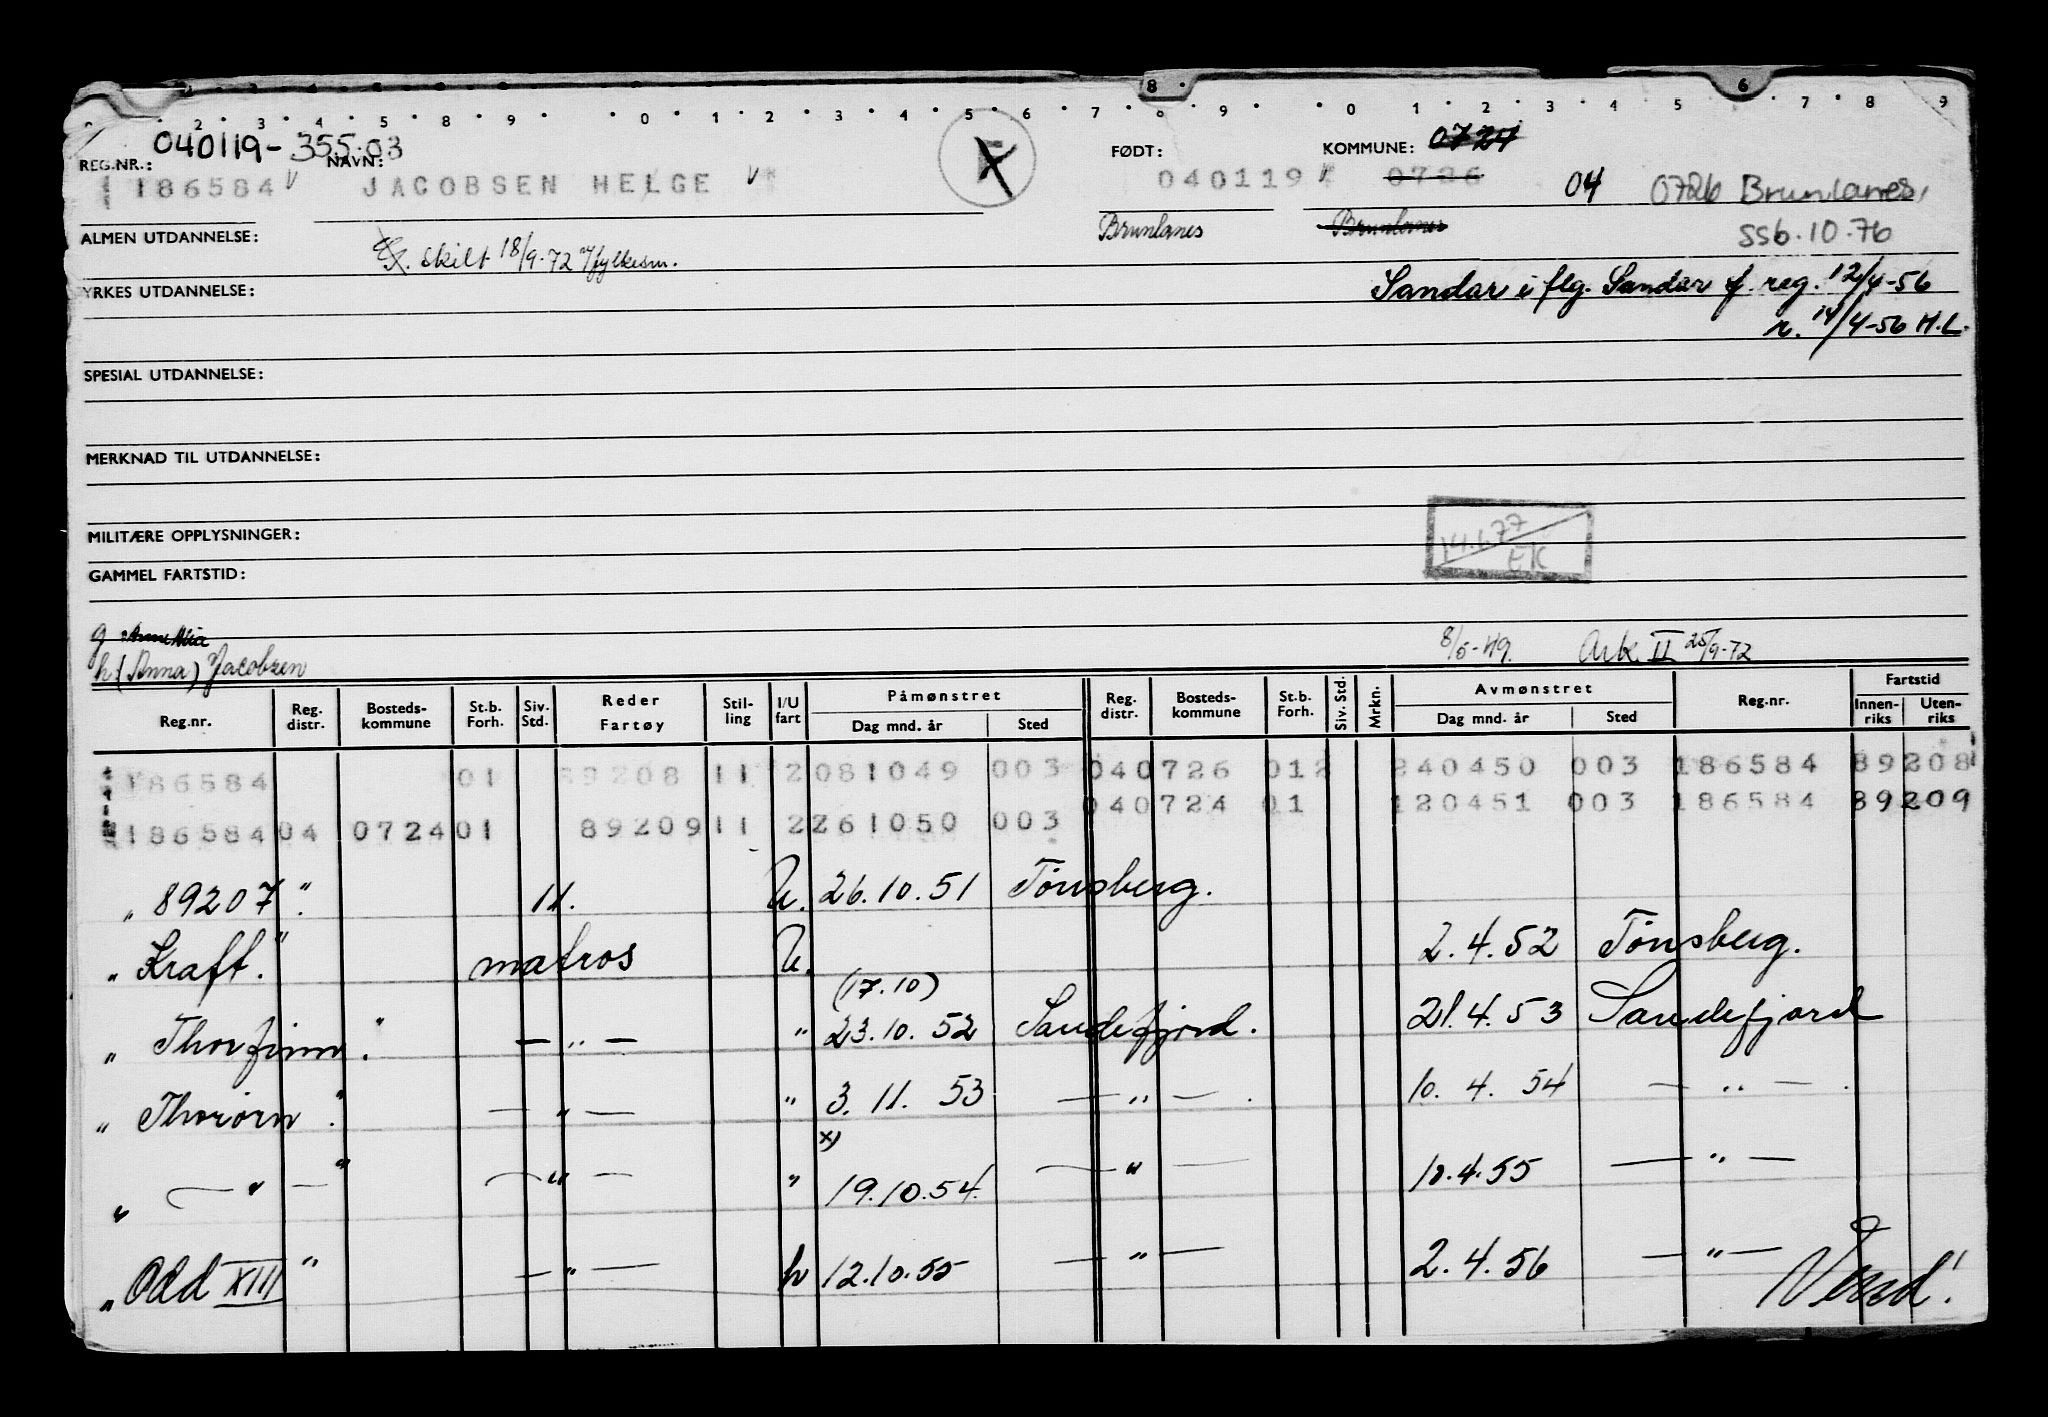 2 3 4 5 8 9 0 1 2 3 4 5 6 7 8 9 0 1 2 3 4 5 6 7 8 9
040119-355.03
REG.NR.: NAVN: FØDT: KOMMUNE: 0724
186584 JACOBSEN HELGE 040119 0726 04 0726 Brunlanes,
ALMEN UTDANNELSE: Brunlanes Brunlanes SSb.10.76
skilt 18/9-72 v/fylkesm.
YRKES UTDANNELSE: Sandar i flg. Sandar f. reg. 12/4-56
r. 14/4-56 H.L.
SPESIAL UTDANNELSE:
MERKNAD TIL UTDANNELSE:
MILITÆRE OPPLYSNINGER: 14.1.77
EK
GAMMEL FARTSTID:
g
h (Anna) Jacobsen 8/5-49. Ark II 25/9-72
Reg.nr. Reg. distr. Bosteds-kommune St.b. Forh. Siv. Std. Reder Fartøy Stil-ling I/U fart Påmønstret Dag mnd. år Sted Reg. distr. Bosteds-kommune St.b. Forh. Siv. Std. Mrkn. Avmønstret Dag mnd. år Sted Reg.nr. Fartstid Innen-riks Uten-riks
186584 01 89208 11 2 081049 003 040726 012 240450 003 186584 89208
040724 01 120451 003 186584 89209
186584 04 0724 01 89209 11 2 261050 003
" 89207 " 11. U. 26.10.51 Tönsberg.
" Kraft. " matros U. 2.4.52 Tönsberg.
(17.10)
" Thorfinn. " — " — " 23.10.52 Sandefjord. 21.4.53 Sandefjord
" Thorörn. " — " — " 3.11.53 — " — . 10.4.54 — " — .
x)
" — " — " — " — " 19.10.54. — " — 10.4.55 — " —
" Odd XIII " — " — h 12.10.55 — " — 2.4.56 — " —
Vend!